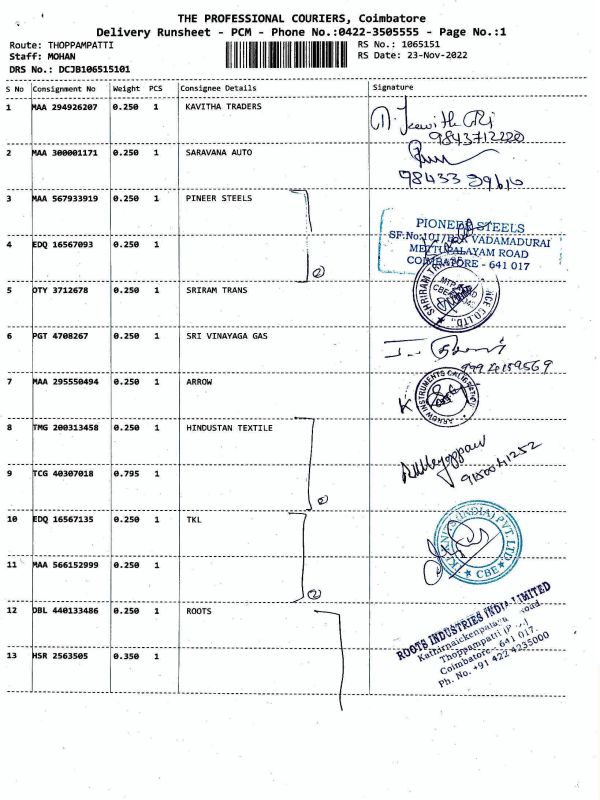 THE PROFESSIONAL COURIERS, Coimbatore
Delivery Runsheet - PCM - Phone No.:0422-3505555 - Page No.:1
Route: THOPPAMPATTI RS No.: 1065151
Staff: MOHAN RS Date: 23-Nov-2022
DRS No.: DCJB106515101
S No Consignment No Weight PCS Consignee Details Signature
1 MAA 294926207 0.250 1 KAVITHA TRADERS
9843712220
2 MAA 300001171 0.250 1 SARAVANA AUTO
98433 39610
3 MAA 567933919 0.250 1 PINEER STEELS
PIONEER STEELS
VADAMADURAI
METTUPALAYAM ROAD
COIMBATORE - 641 017
4 EDQ 16567093 0.250 1
②
5 OTY 3712678 0.250 1 SRIRAM TRANS
SHRIRAM
6 PGT 4708267 0.250 1 SRI VINAYAGA GAS
7 MAA 295550494 0.250 1 ARROW
ARROW INSTRUMENTS
8 TMG 200313458 0.250 1 HINDUSTAN TEXTILE
9150041252
9 TCG 40307018 0.795 1
②
10 EDQ 16567135 0.250 1 TKL
(INDIA) PVT. LTD
CBE
11 MAA 566152999 0.250 1
②
12 DBL 440133486 0.250 1 ROOTS
ROOTS INDUSTRIES INDIA LIMITED
Road
Thoppampatti
Coimbatore - 641 017.
Ph. No. +91 422 4235000
13 HSR 2563505 0.350 1